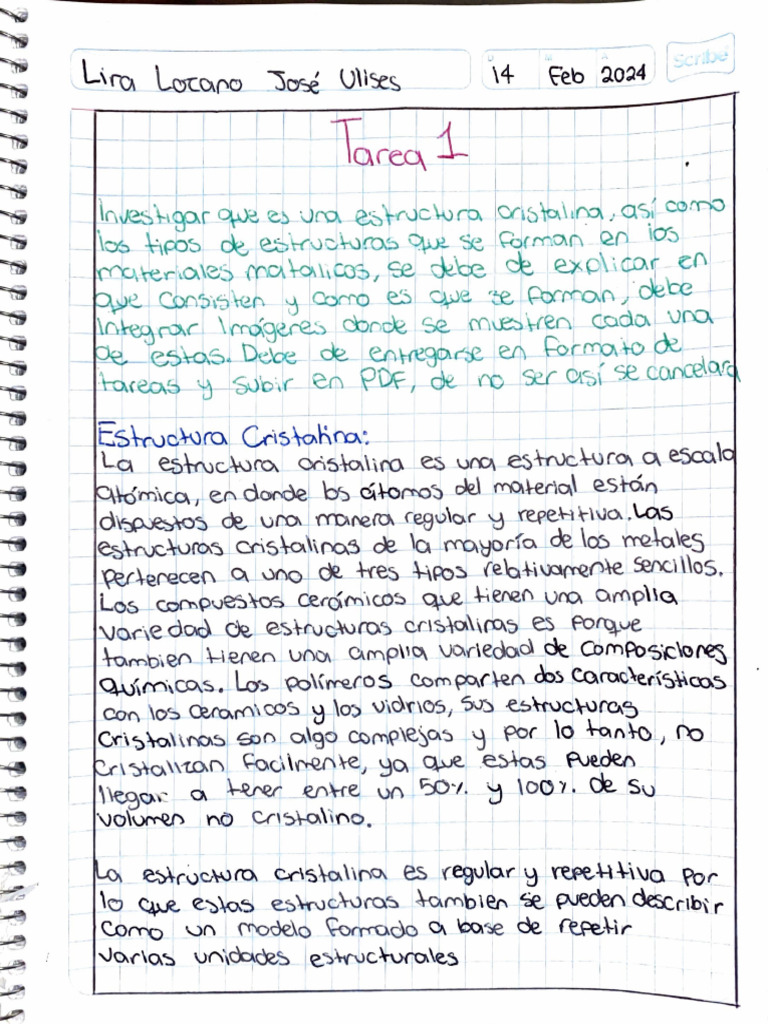 Lira Lozano José Ulises
14 Feb 2024
Scribe
Tarea 1
Investigar que es una estructura cristalina, así como
los tipos de estructuras que se forman en los
materiales matalicos, se debe de explicar en
que consisten y como es que se forman, debe
integrar imágenes donde se muestren cada una
de estas. Debe de entregarse en formato de
tareas y subir en PDF, de no ser así se cancelará
Estructura Cristalina:
La estructura cristalina es una estructura a escala
atómica, en donde los átomos del material están
dispuestos de una manera regular y repetitiva. Las
estructuras cristalinas de la mayoría de los metales
pertenecen a uno de tres tipos relativamente sencillos.
Los compuestos cerámicos que tienen una amplia
variedad de estructuras cristalinas es porque
tambien tienen una amplia variedad de composiciones
químicas. Los polímeros comparten dos características
con los ceramicos y los vidrios, sus estructuras
cristalinas son algo complejas y por lo tanto, no
cristalizan facilmente, ya que estas pueden
llegar a tener entre un 50% y 100% de su
volumen no cristalino.
La estructura cristalina es regular y repetitiva por
lo que estas estructuras tambien se pueden describir
como un modelo formado a base de repetir
varias unidades estructurales